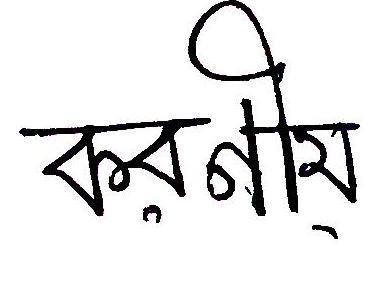 করণীয়